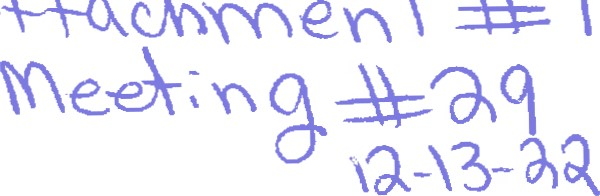 ttachment #1
Meeting #29
12-13-22